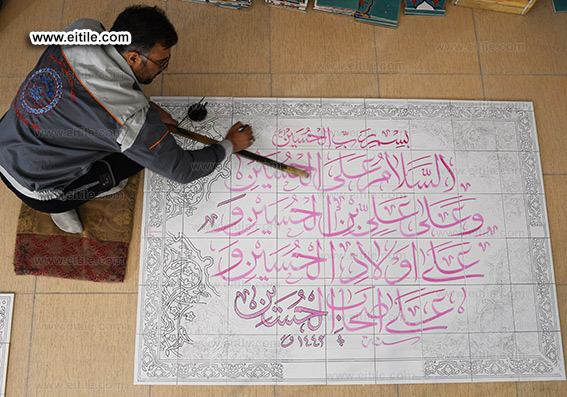 www.eitile.com
بسم رب الحسین
السلام علی الحسین
و علی علی بن الحسین و
علی اولاد الحسین و
علی اصحاب الحسین
سنه ۱۴۴۲ ق